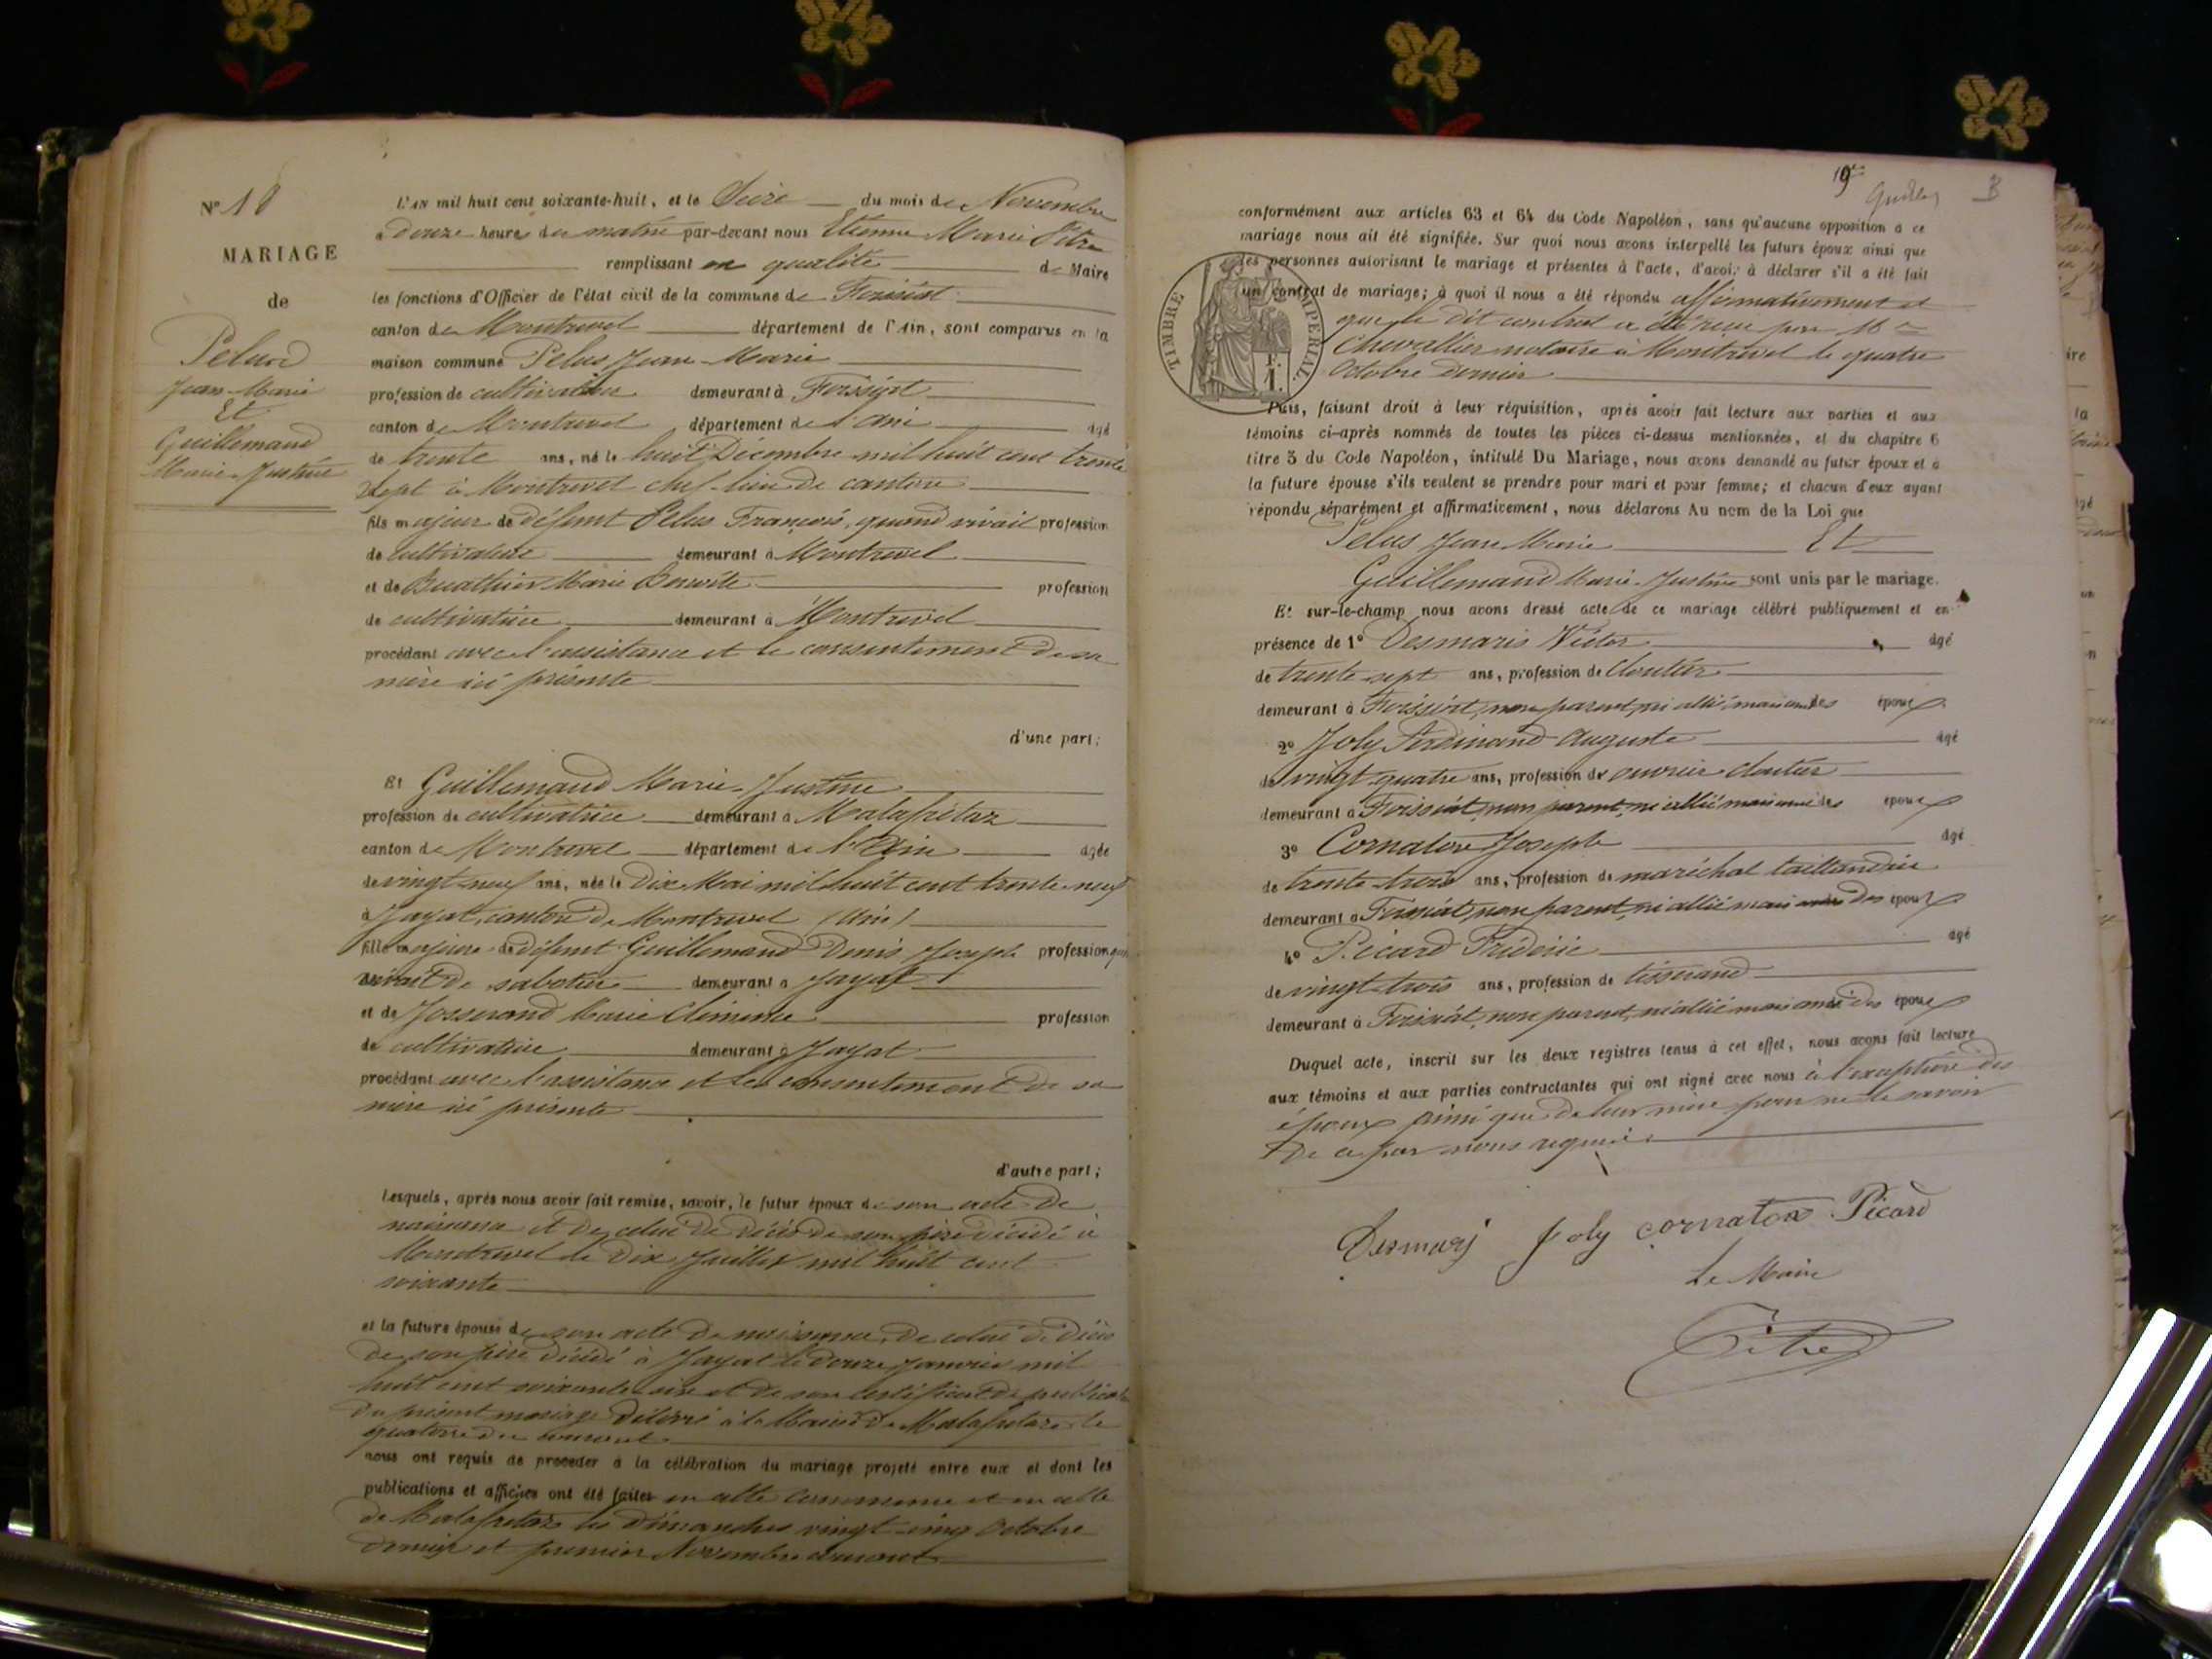 N° 18
MARIAGE
de
Pelus
Jean-Marie
Et
Guillemaud
Marie-Justine
L'AN mil huit cent soixante-huit, et le Seize du mois de Novembre
à douze heures du matin par-devant nous Etienne Marie Pitre
remplissant en qualité de Maire
les fonctions d'Officier de l'état civil de la commune de Foissiat
canton de Montrevel département de l'Ain, sont comparus en la
maison commune Pelus Jean-Marie
profession de cultivateur demeurant à Foissiat
canton de Montrevel département de l'ain âgé
de trente ans, né le huit Décembre mil huit cent trente
sept à Montrevel chef-lieu de canton
fils majeur de défunt Pelus François, quand vivait profession
de cultivateur demeurant à Montrevel
et de Buathier Marie Benoîte profession
de cultivatrice demeurant à Montrevel
procédant avec l'assistance et le consentement de sa
mère ici présente
d'une part;
Et Guillemaud Marie-Justine
profession de cultivatrice demeurant à Malafretaz
canton de Montrevel département de l'Ain âgée
de vingt-neuf ans, née le Dix Mai mil huit cent trente-neuf
à Jayat, canton de Montrevel (Ain)
fille majeure de défunt Guillemaud Denis Joseph profession quand
vivait de sabotier demeurant à Jayat
et de Josserand Marie Clémence profession
de cultivatrice demeurant à Jayat
procédant avec l'assistance et le consentement de sa
mère ici présente
d'autre part;
Lesquels, après nous avoir fait remise, savoir, le futur époux de son acte de
naissance et de celui de décès de son père décédé à
Montrevel le Dix Juillet mil huit cent
soixante
et la future épouse de son acte de naissance, de celui de décès
de son père décédé à Jayat le douze Janvier mil
huit cent soixante six et de son certificat de publication
du présent mariage délivré à la Mairie de Malafretaz le
quatorze du courant
nous ont requis de procéder à la célébration du mariage projeté entre eux et dont les
publications et affiches ont été faites en cette commune et en celle
de Malafretaz les dimanches vingt-cinq Octobre
dernier et premier Novembre courant
9
B
conformément aux articles 63 et 64 du Code Napoléon, sans qu'aucune opposition à ce
mariage nous ait été signifiée. Sur quoi nous avons interpellé les futurs époux ainsi que
les personnes autorisant le mariage et présentes à l'acte, d'avoir à déclarer s'il a été fait
un contrat de mariage; à quoi il nous a été répondu affirmativement et
que le dit contrat a été reçu par Me
Chevallier notaire à Montrevel le quatre
Octobre dernier
TIMBRE IMPERIAL.
1 F.
Puis, faisant droit à leur réquisition, après avoir fait lecture aux parties et aux
témoins ci-après nommés de toutes les pièces ci-dessus mentionnées, et du chapitre 6
titre 5 du Code Napoléon, intitulé Du Mariage, nous avons demandé au futur époux et à
la future épouse s'ils veulent se prendre pour mari et pour femme; et chacun d'eux ayant
répondu séparément et affirmativement, nous déclarons Au nom de la Loi que
Pelus Jean Marie Et
Guillemaud Marie-Justine sont unis par le mariage.
Et sur-le-champ nous avons dressé acte de ce mariage célébré publiquement et en
présence de 1° Desmaris Victor âgé
de trente-sept ans, profession de cloutier
demeurant à Foissiat, non parent, ni allié, mais ami des époux
2° Joly Ferdinand Auguste âgé
de vingt-quatre ans, profession de ouvrier cloutier
demeurant à Foissiat, non parent, ni allié mais ami des époux
3° Cornaton Joseph âgé
de trente-trois ans, profession de maréchal taillandier
demeurant à Foissiat, non parent, ni allié mais ami des époux
4° Picard Frédéric âgé
de vingt-trois ans, profession de tisserand
demeurant à Foissiat, non parent, ni allié mais ami des époux
Duquel acte, inscrit sur les deux registres tenus à cet effet, nous avons fait lecture
aux témoins et aux parties contractantes qui ont signé avec nous à l'exception des
époux ainsi que de leur mère pour ne le savoir
de ce par nous requis.
Desmaris Joly Cornaton Picard
Le Maire
Pitre